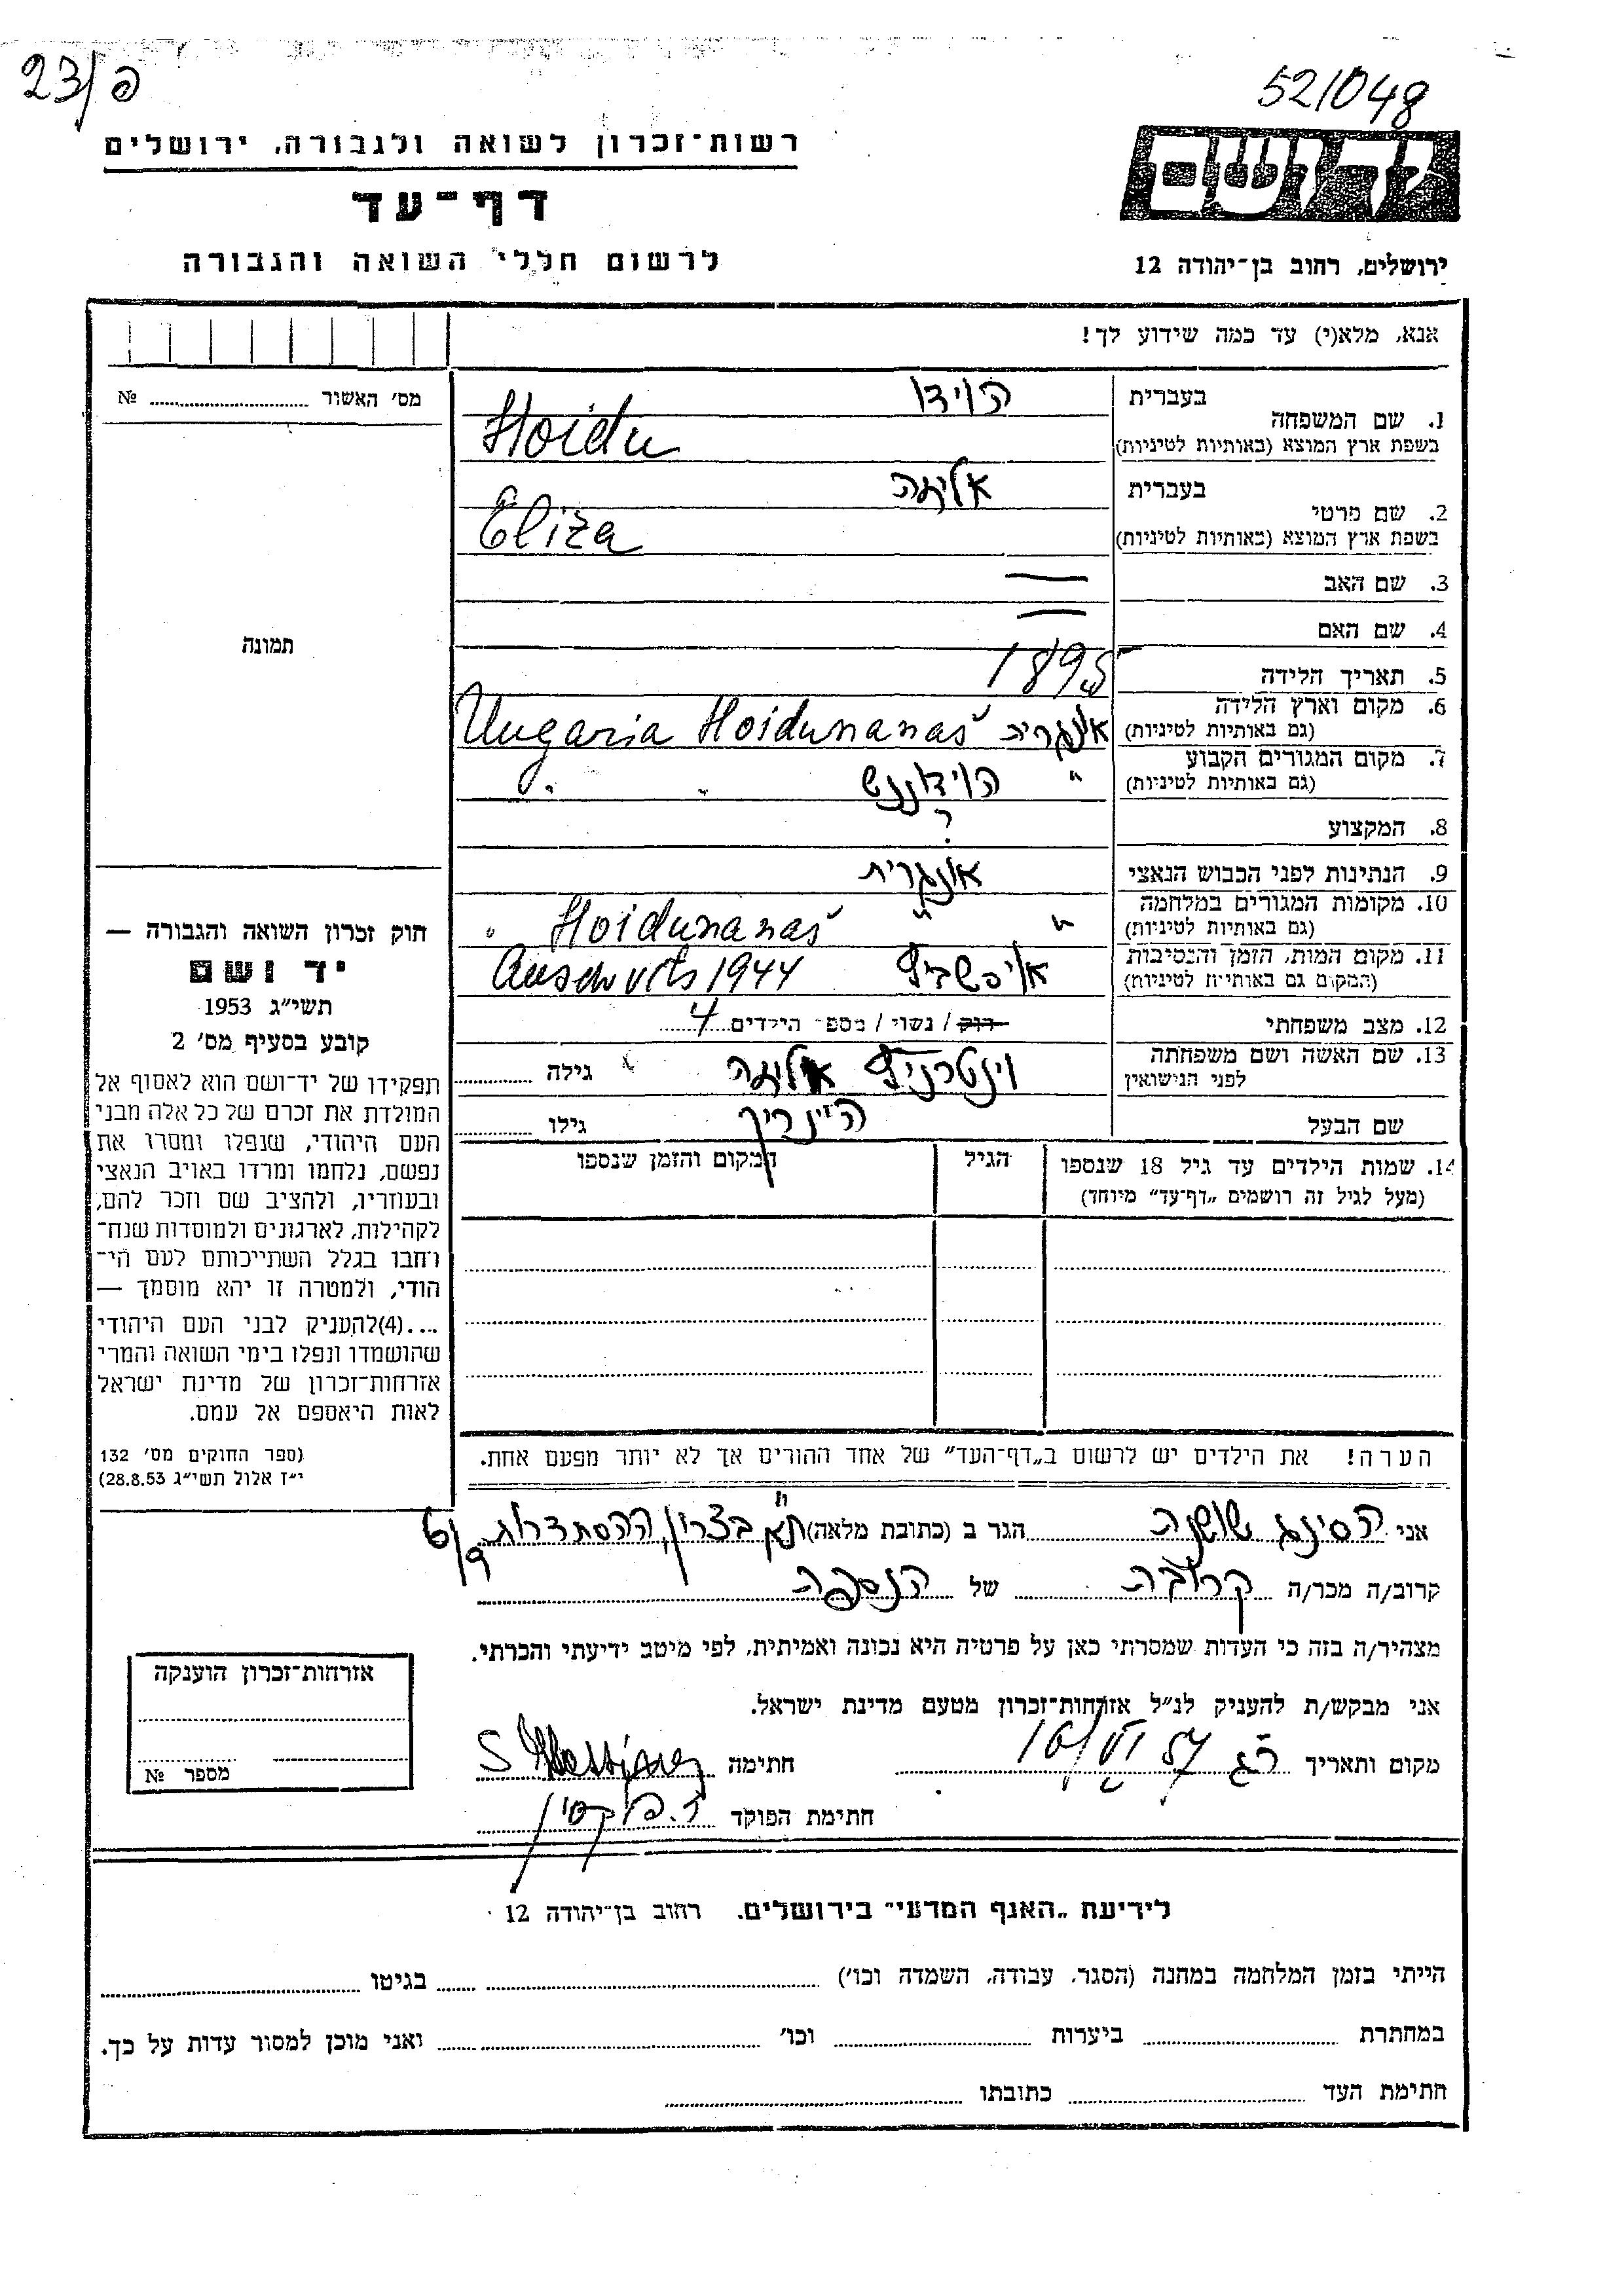 23/פ
52/048
רשות־זכרון לשואה ולגבורה, ירושלים
יד ושם
דף־עד
לרשום חללי השואה והגבורה
ירושלים, רחוב בן־יהודה 12
אנא, מלא(י) עד כמה שידוע לך!
מס׳ האשור ........ №
תמונה
בעברית הוידו
1. שם המשפחה
בשפת ארץ המוצא (באותיות לטיניות) Hoidu
בעברית אליזה
2. שם פרטי
בשפת ארץ המוצא (באותיות לטיניות) Eliza
3. שם האב —
4. שם האם —
5. תאריך הלידה 1895
6. מקום וארץ הלידה
(גם באותיות לטיניות) אונגריה Ungaria Hoidunanaš
7. מקום המגורים הקבוע
(גם באותיות לטיניות) " הוידוננש " "
8. המקצוע ?
9. הנתינות לפני הכבוש הנאצי אונגרית
10. מקומות המגורים במלחמה
(גם באותיות לטיניות) " " Hoidunanaš "
11. מקום המות, הזמן והנסיבות
(המקום גם באותיות לטיניות) אושביץ Auschvits 1944
12. מצב משפחתי רוק / נשוי / מספר הילדים 4
13. שם האשה ושם משפחתה
לפני הנישואין וינטרניץ אליזה גילה ........
שם הבעל היינריך גילו ........
14. שמות הילדים עד גיל 18 שנספו
(מעל לגיל זה רושמים „דף־עד” מיוחד)
הגיל
המקום והזמן שנספו
חוק זכרון השואה והגבורה —
יד ושם
תשי״ג 1953
קובע בסעיף מס׳ 2
תפקידו של יד־ושם הוא לאסוף אל
המולדת את זכרם של כל אלה מבני
העם היהודי, שנפלו ומסרו את
נפשם, נלחמו ומרדו באויב הנאצי
ובעוזריו, ולהציב שם וזכר להם,
לקהילות, לארגונים ולמוסדות שנח־
רחבו בגלל השתייכותם לעם הי־
הודי, ולמטרה זו יהא מוסמך —
....(4)להעניק לבני העם היהודי
שהושמדו ונפלו בימי השואה והמרי
אזרחות־זכרון של מדינת ישראל
לאות היאספם אל עמם.
(ספר החוקים מס׳ 132
י״ז אלול תשי״ג 28.8.53)
הערה! את הילדים יש לרשום ב„דף־העד” של אחד ההורים אך לא יותר מפעם אחת.
אני הסינג שושנה הגר ב (כתובת מלאה) ת"א בצרון, ההסתדרות 6/9
קרוב/ה מכר/ה קרובה של הנספה
מצהיר/ה בזה כי העדות שמסרתי כאן על פרטיה היא נכונה ואמיתית, לפי מיטב ידיעתי והכרתי.
אני מבקש/ת להעניק לנ״ל אזרחות־זכרון מטעם מדינת ישראל.
מקום ותאריך ר"ג 16/VI 57 חתימה S Hessing
חתימת הפוקד
אזרחות־זכרון הוענקה
מספר №
לידיעת „האגף המדעי” בירושלים. רחוב בן־יהודה 12
הייתי בזמן המלחמה במחנה (הסגר, עבודה, השמדה וכו׳) ........ בגיטו ........
במחתרת ........ ביערות ........ וכו׳ ........ ואני מוכן למסור עדות על כך.
חתימת העד ........ כתובתו ........